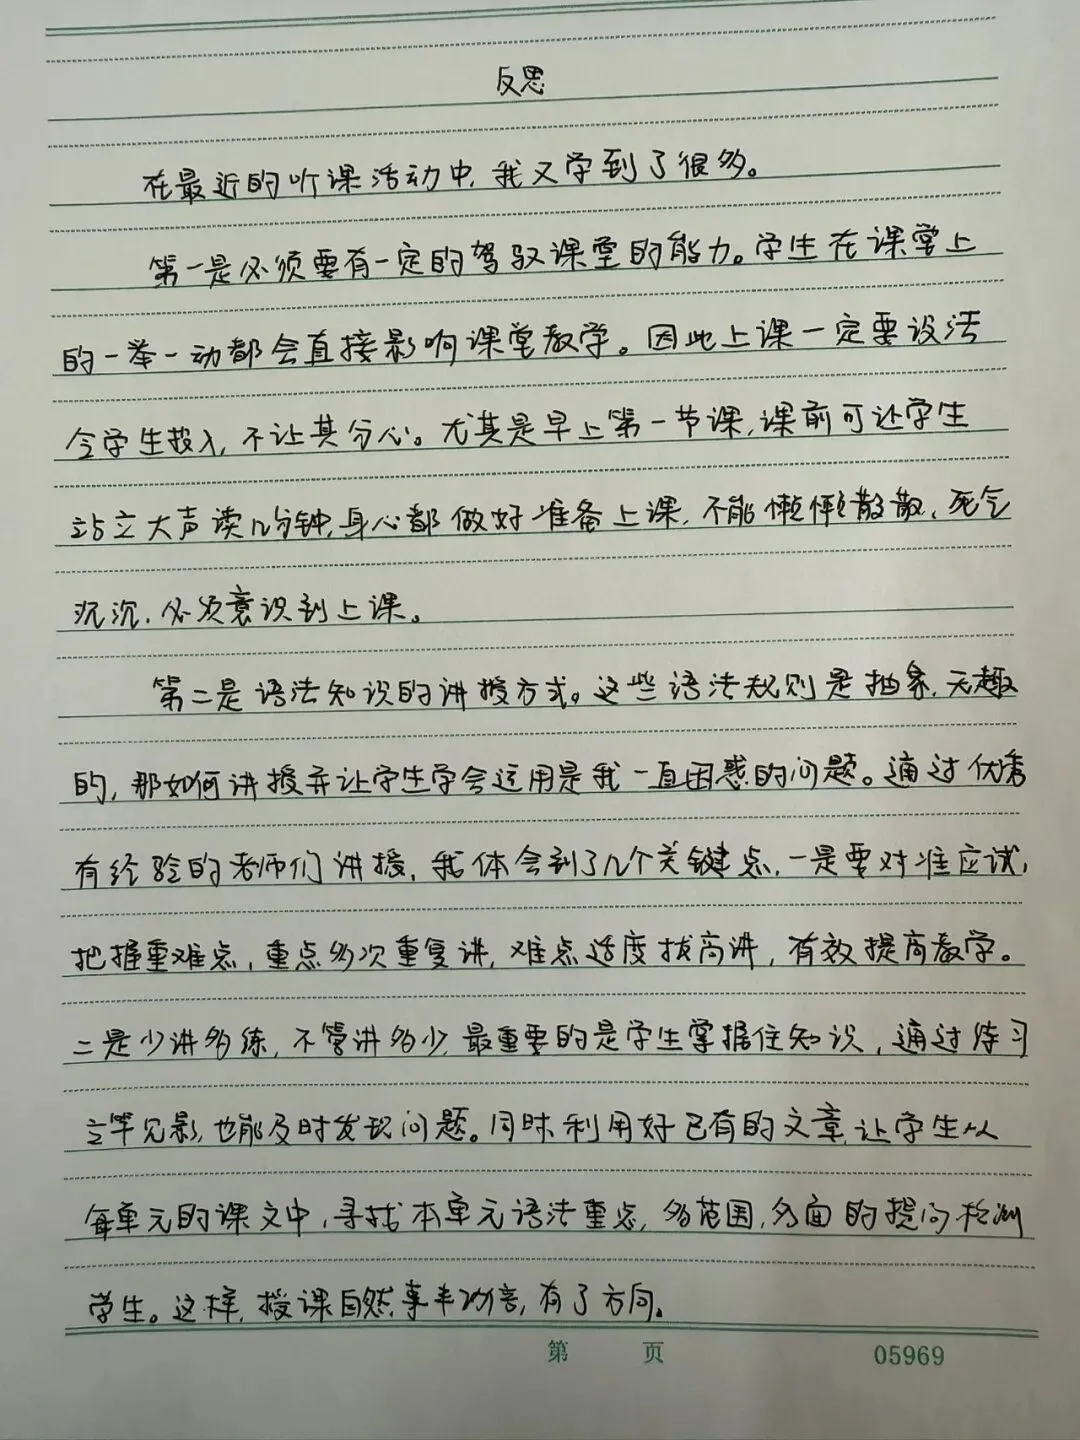 反思
在最近的听课活动中,我又学到了很多。
第一是必须要有一定的驾驭课堂的能力。学生在课堂上
的一举一动都会直接影响课堂教学。因此上课一定要设法
令学生投入,不让其分心。尤其是早上第一节课,课前可让学生
站立大声读几分钟,身心都做好准备上课,不能懒懒散散、死气
沉沉,必须意识到上课。
第二是语法知识的讲授方式。这些语法规则是抽象、无趣
的,那如何讲授并让学生学会运用是我一直困惑的问题。通过优秀
有经验的老师们讲授,我体会到了几个关键点,一是要对准应试,
把握重难点,重点多次重复讲,难点适度拔高讲,有效提高教学。
二是少讲多练,不管讲多少,最重要的是学生掌握住知识,通过练习
立竿见影,也能及时发现问题。同时利用好已有的文章,让学生从
每单元的课文中,寻找本单元语法重点,多范围,多面的提问检测
学生。这样,授课自然事半功倍,有了方向。
第 页 05969